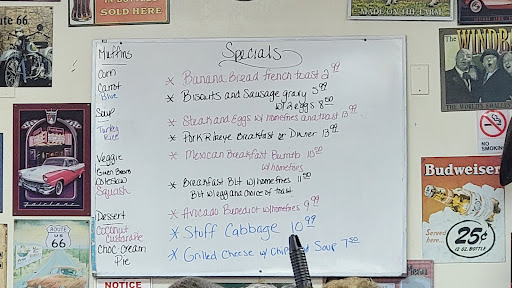 Route 66
SOLD HERE
MADE ON THE FARM
Muffins
Corn
Carrot
Blue
Soup
Turkey
Rice
Veggie
Green Beans
Coleslaw
Squash
Dessert
Coconut
Custard Pie
Choc. Cream
Pie
Specials
* Banana Bread french toast 2 99
* Biscuits and Sausage gravy 5 99
w/ 2 eggs 8 50
* Steak and Eggs w/ homefries and toast 13 99
* Pork Ribeye Breakfast or Dinner 13 99
* Mexican Breakfast Burrito 10 50
w/ homefries
* Breakfast Blt w/ homefries 11 50
Blt w/ egg and choice of toast
* Avocado Benedict w/ homefries 9 99
* Stuff Cabbage 10 99
* Grilled Cheese w/ Soup 7 50
THE WORLDS
NO
SMOKING
Budweiser
Served
here...
25¢
12 OZ. BOTTLE
fairlane
ROUTE
US
66
NOTICE
MENU